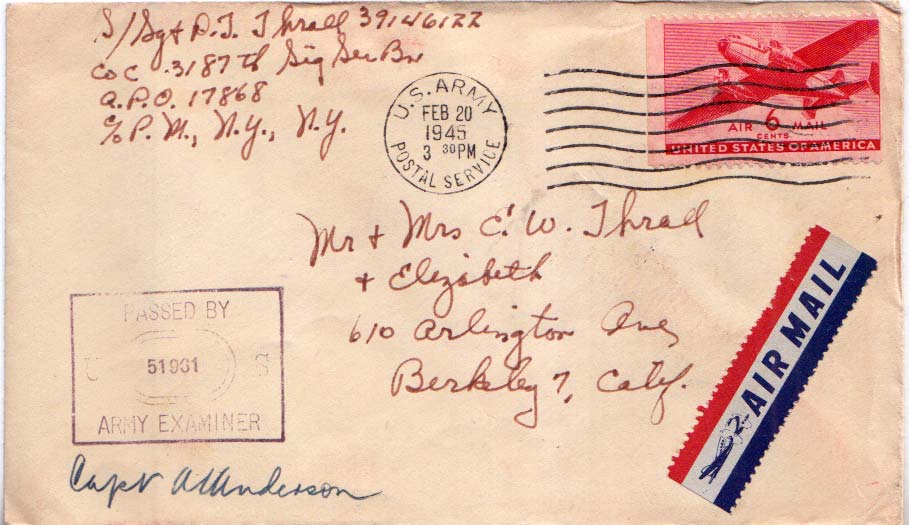 S/Sgt D.T. Thrall 39146122
Co C 3187th Sig Ser Bn
A.P.O. 17868
c/o P.M., N.Y., N.Y.
U.S. ARMY
FEB 20
1945
3 30 PM
POSTAL SERVICE
AIR 6 MAIL
CENTS
UNITED STATES OF AMERICA
Mr + Mrs E. W. Thrall
+ Elizabeth
610 Arlington Ave,
Berkeley 7, Calif.
PASSED BY
U 51981 S
ARMY EXAMINER
Capt Anderson
AIR MAIL